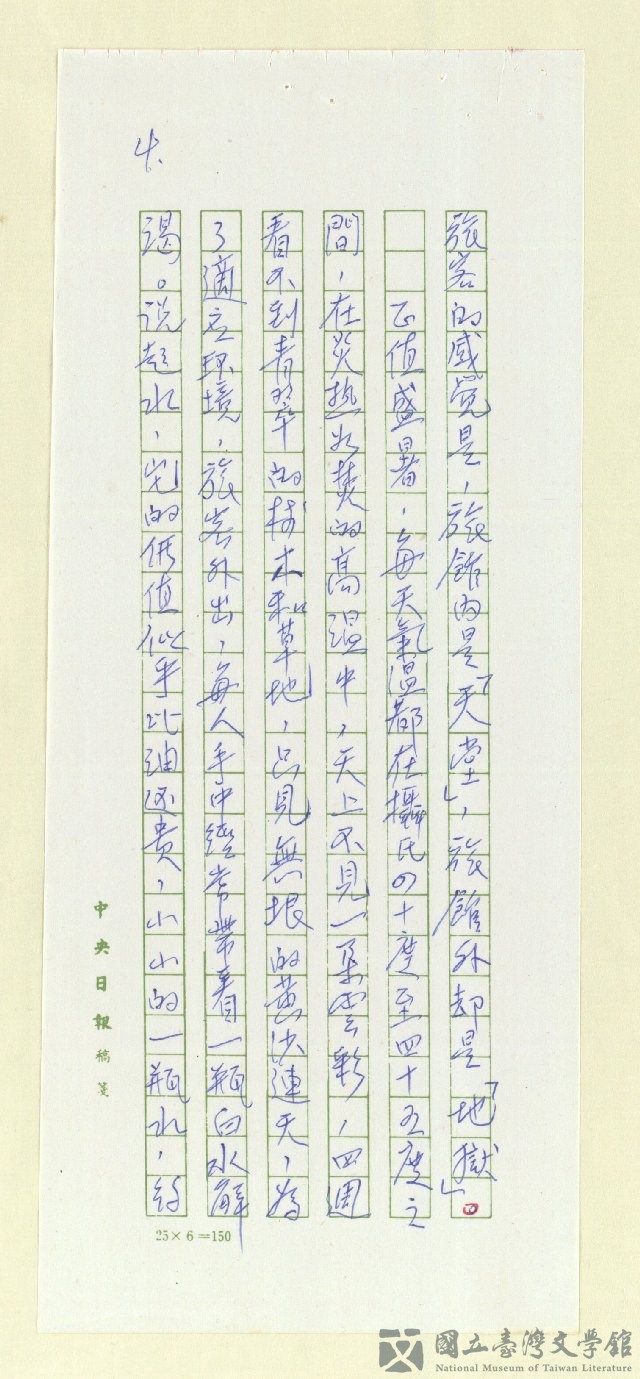 4.
旅客的感覺是，旅館內是「天堂」，旅館外却是「地獄」。
正值盛暑，每天氣溫都在攝氏四十度至四十五度之
間，在炎热如焚的高溫中，天上不見一朵雲彩，四週
看不到青翠的树木和草地，只見無垠的黄沙連天，為
了適应环境，旅客外出，每人手中經常带着一瓶白水解
渴。说起水，它的価值似乎比油还贵，小小的一瓶水，約
中央日報稿箋
25×6=150
國立臺灣文學館
National Museum of Taiwan Literature